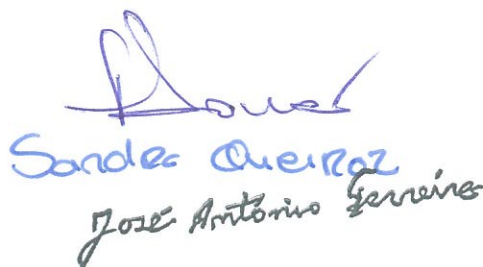 Sandra Queiroz
José António Ferreira